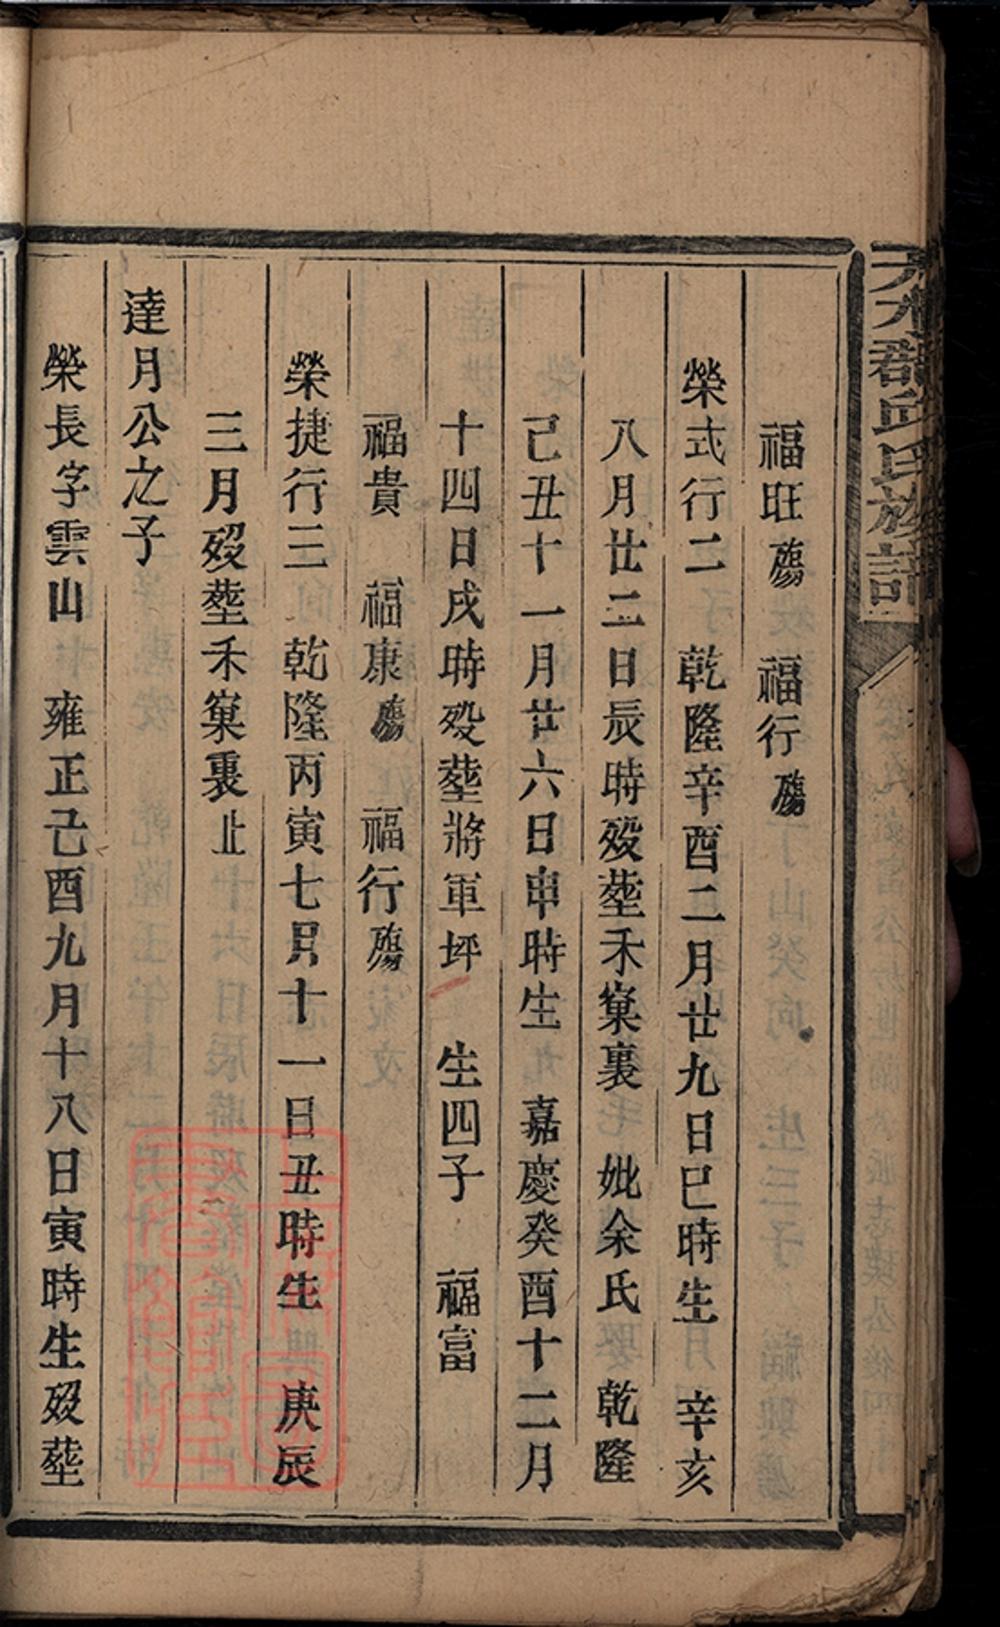 天水郡邱氏族譜
福旺殤 福行殤
榮式行二 乾隆辛酉二月廿九日巳時生 辛亥
八月廿二日辰時歿塟禾窠裏 妣余氏娶 乾隆
己丑十一月廿六日申時生 嘉慶癸酉十二月
十四日戌時歿塟將軍坪 生四子 福富
福貴 福康殤 福行殤
榮捷行三 乾隆丙寅七月十一日丑時生 庚辰
三月歿塟禾窠裏止
達月公之子
榮長字雲山 雍正己酉九月十八日寅時生歿塟